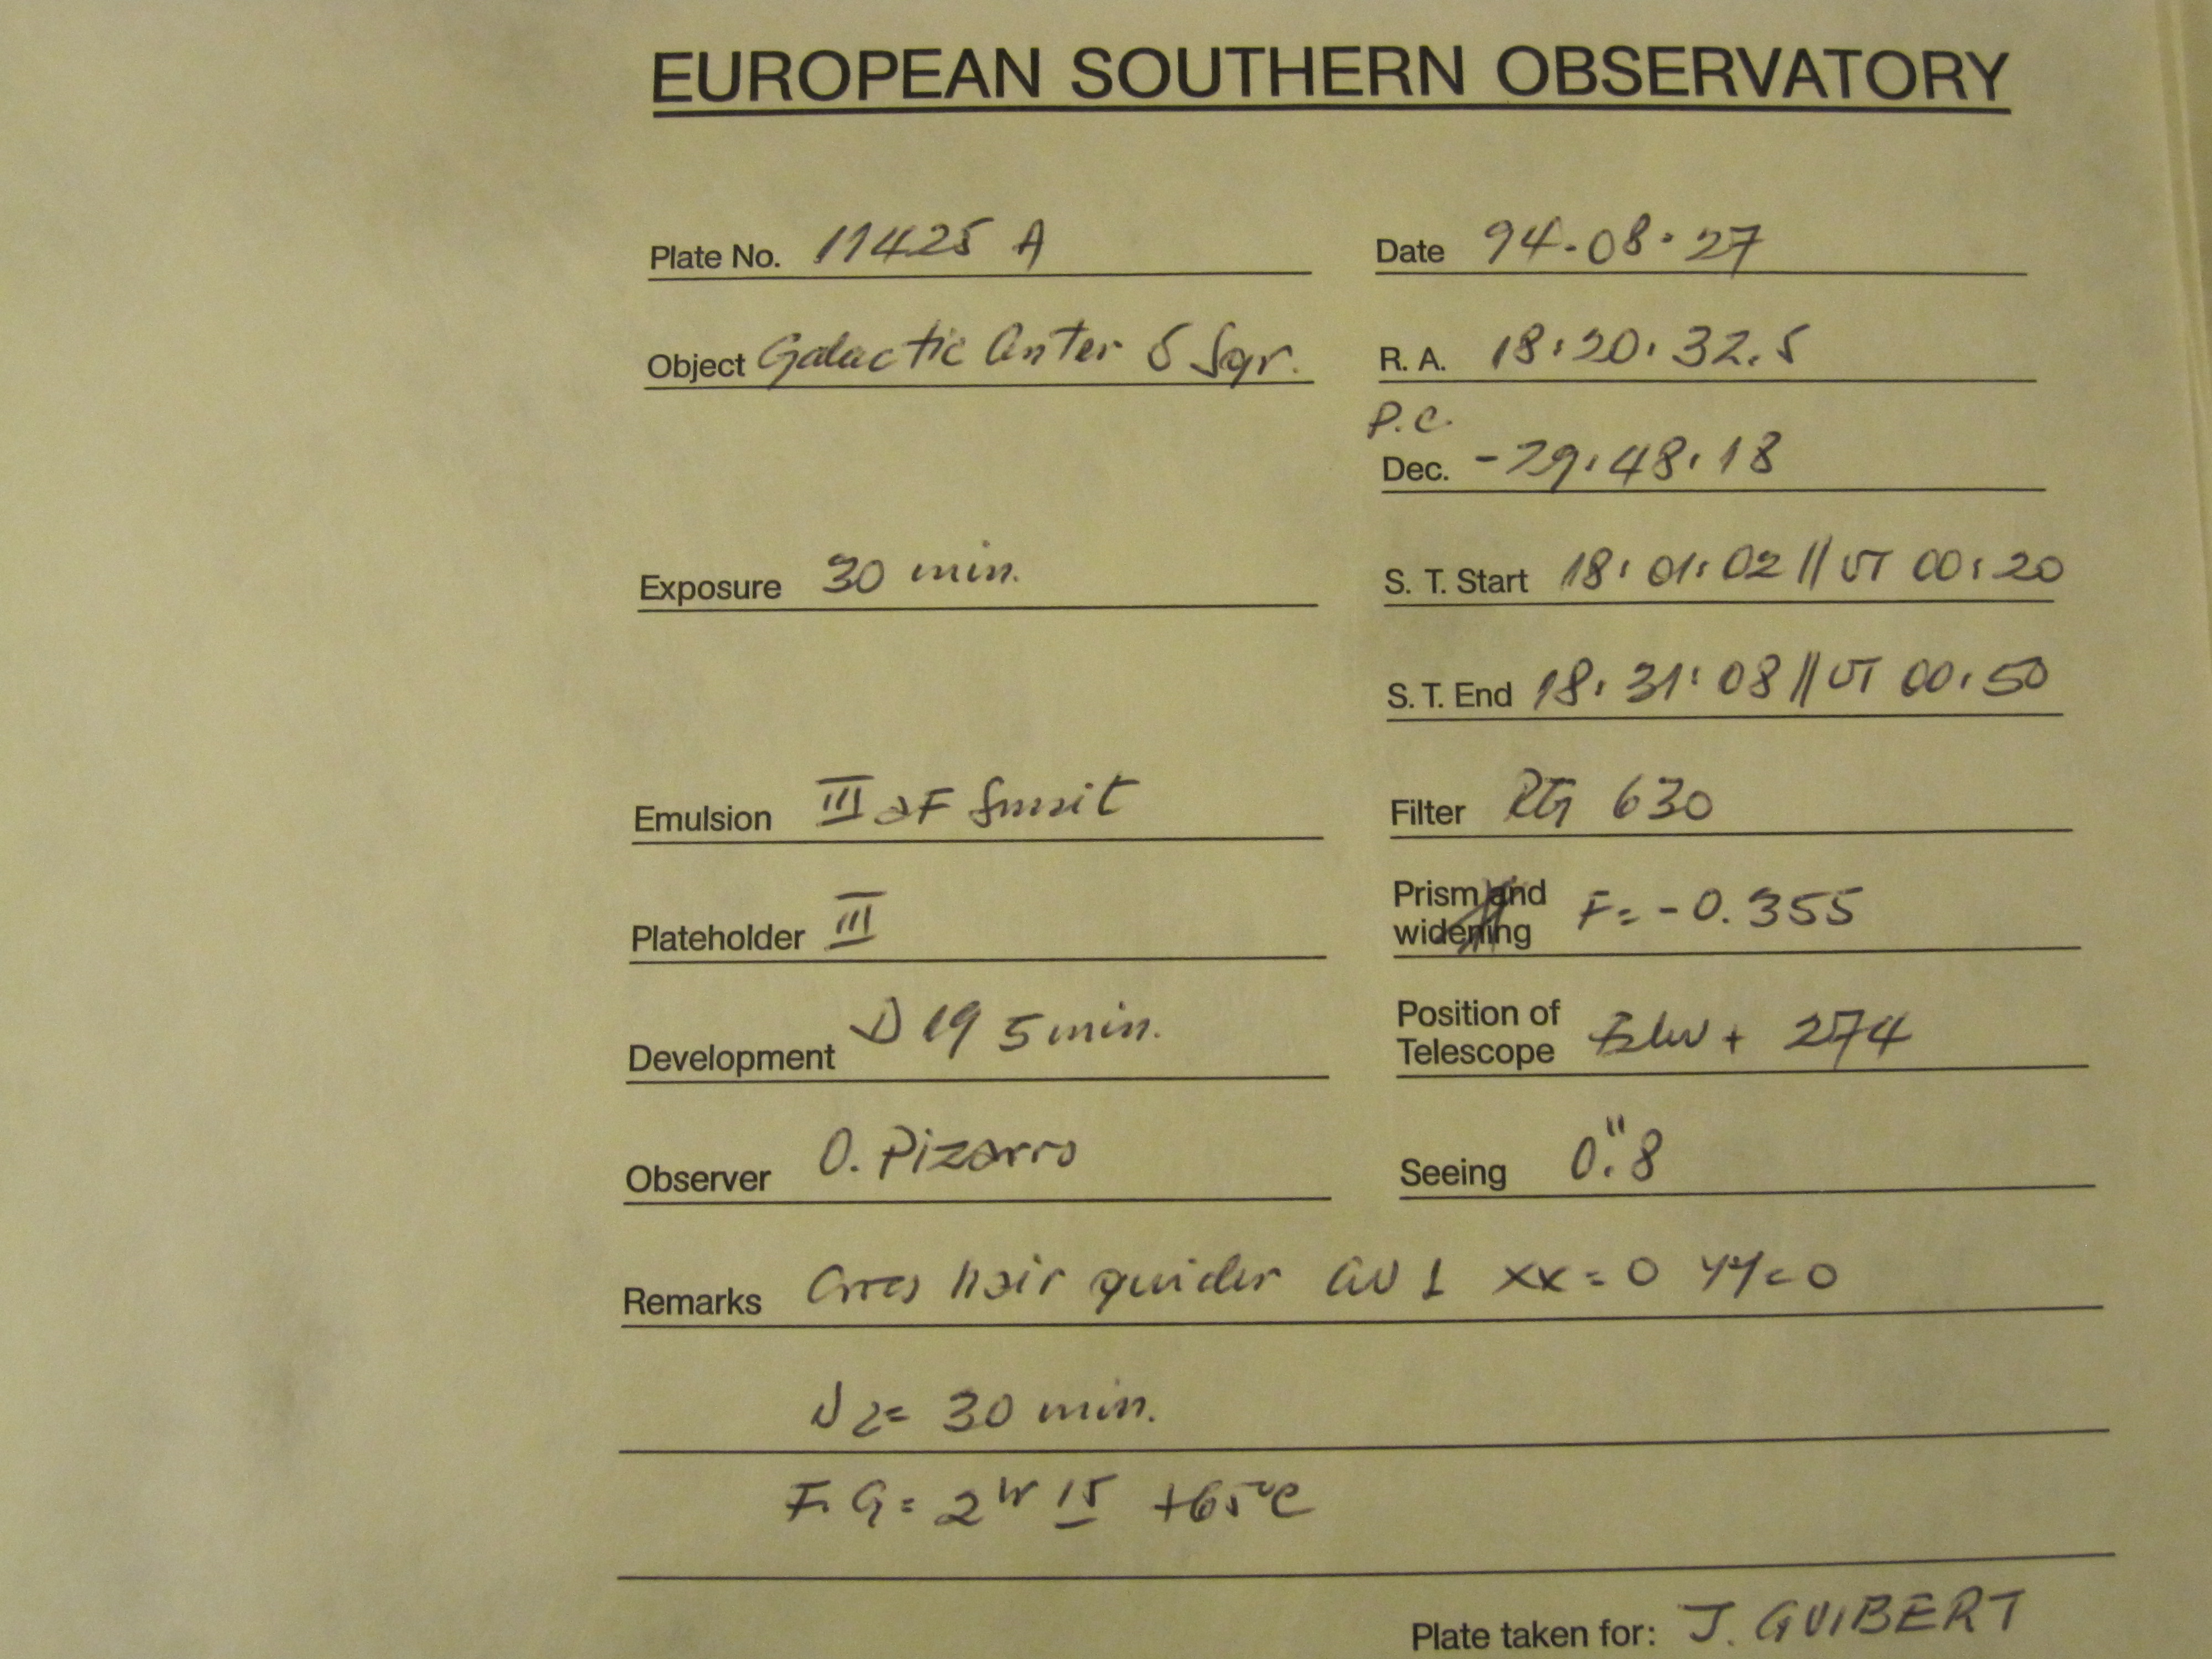 EUROPEAN SOUTHERN OBSERVATORY
Plate No. 11425 A Date 94.08.27
Object Galactic Center δ Sgr. R. A. 18:20:32.5
P.C.
Dec. -29:48:18
Exposure 30 min. S. T. Start 18:01:02 // UT 00:20
S. T. End 18:31:08 // UT 00:50
Emulsion III aF Filter RG 630
Prism and
Plateholder III widening F= -0.355
Development D 19 5 min. Position of
Telescope + 274
Observer O. Pizarro Seeing 0".8
Remarks Cross hair guider xx = 0 yy = 0
N2= 30 min.
F.G = 2 hr 15 +65°C
Plate taken for: J. GUIBERT